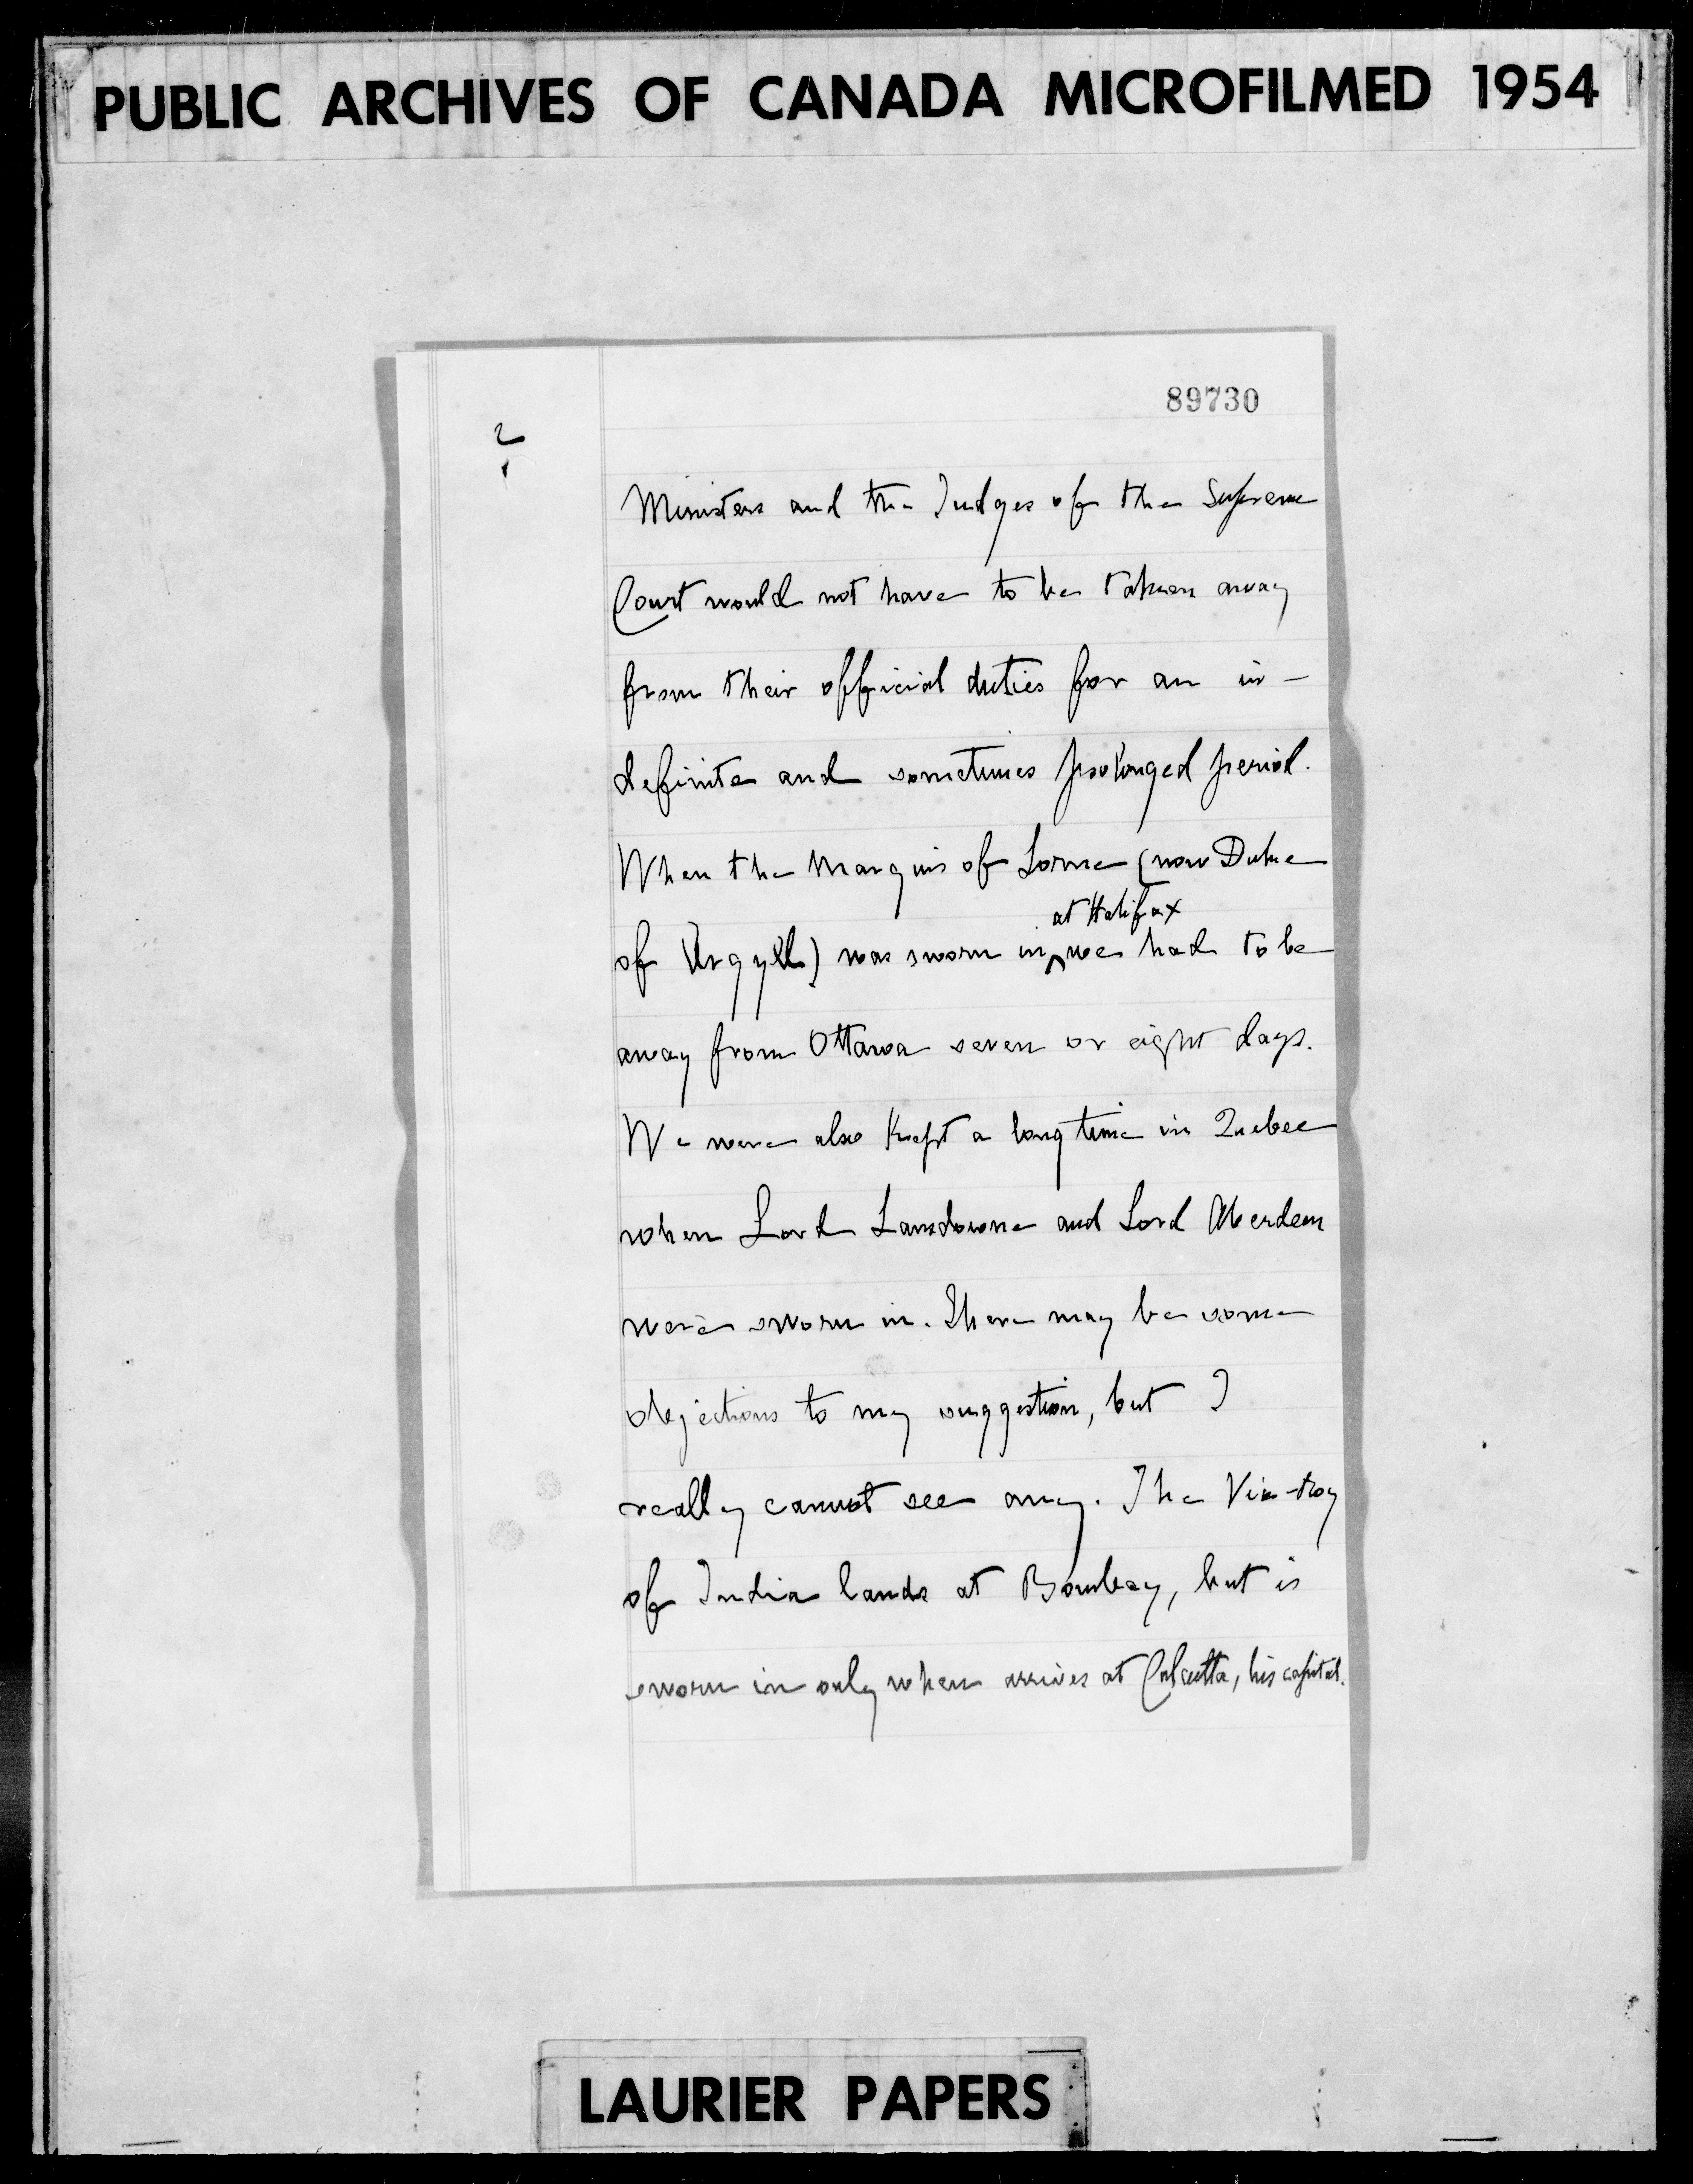 PUBLIC ARCHIVES OF CANADA MICROFILMED 1954
89730
2
Ministers and the Judges of the Supreme
Court would not have to be taken away
from their official duties for an in-
definite and sometimes prolonged period.
When the Marquis of Lorne (now Duke
at Halifax
of Argyll) was sworn in ^ we had to be
away from Ottawa seven or eight days.
We were also kept a long time in Quebec
when Lord Lansdowne and Lord Aberdeen
were sworn in. There may be some
objections to my suggestion, but I
really cannot see any. The Vice-roy
of India lands at Bombay, but is
sworn in only when arrives at Calcutta, his capital.
LAURIER PAPERS